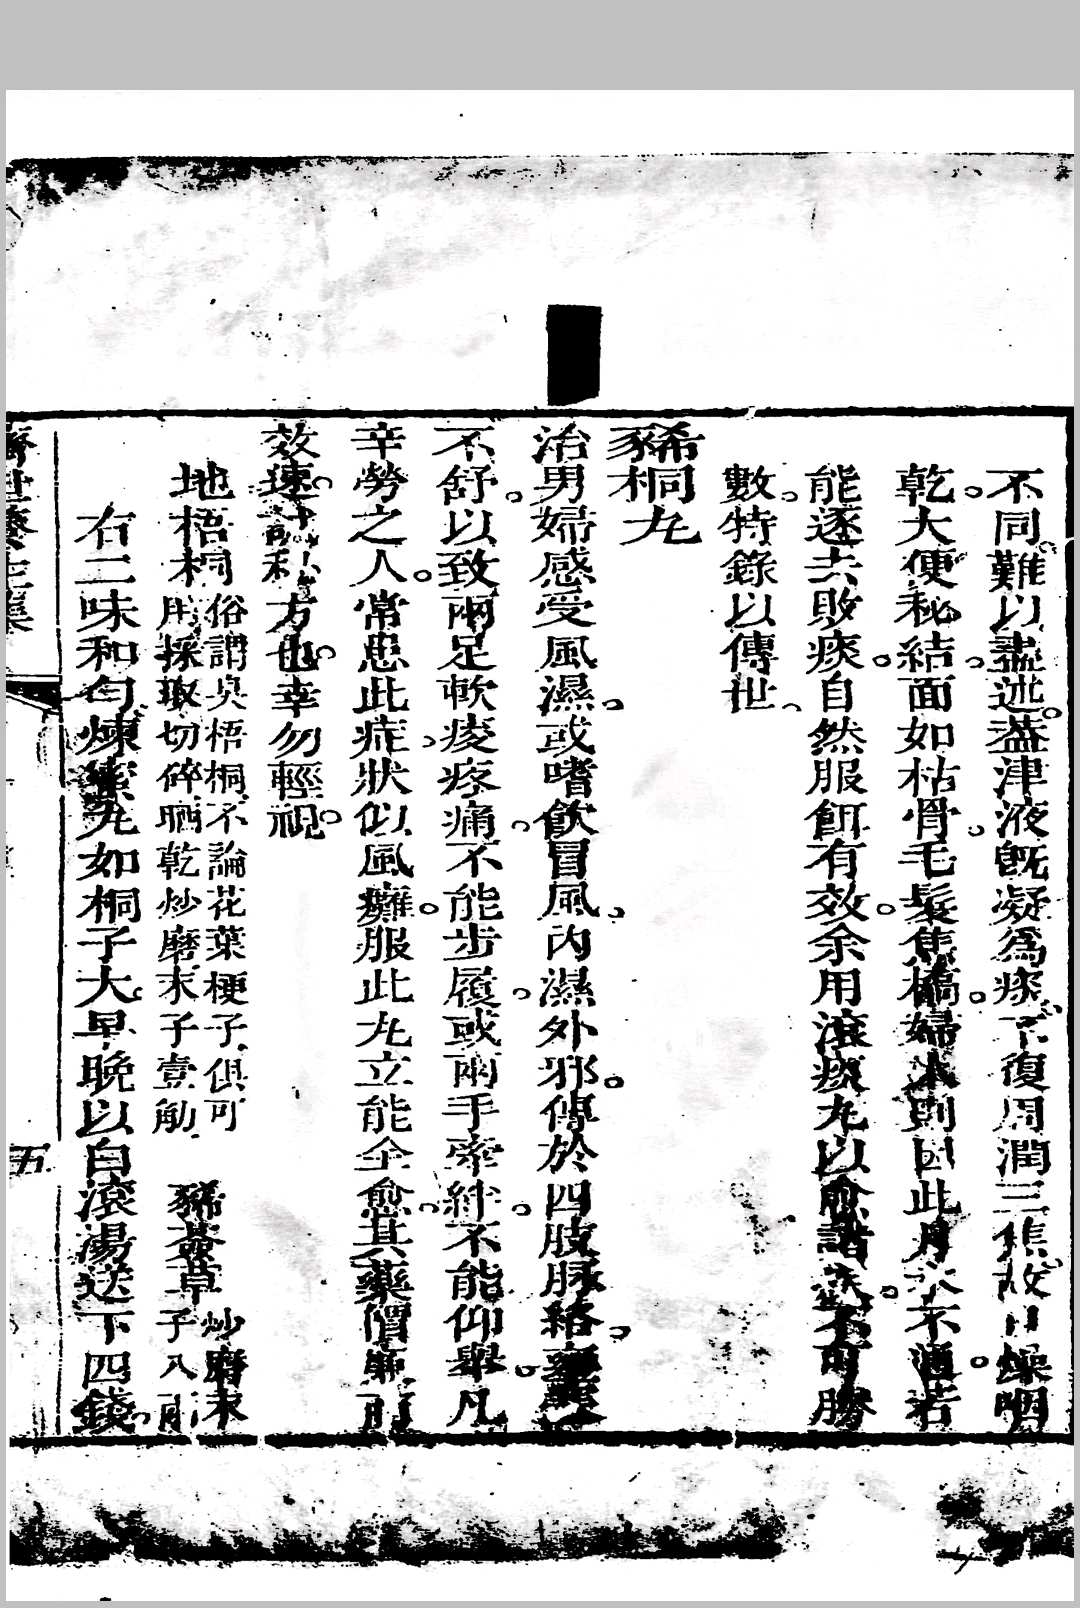 不同難以盡述葢津液既凝為痰不復周潤三焦故口燥咽
乾大便秘結面如枯骨毛髮焦槁婦人則因此月水不通若
能逐去敗痰自然服餌有效余用滾痰丸以愈諸疾不可勝
數特錄以傳世
豨桐丸
治男婦感受風濕或嗜飲冒風內濕外邪傳於四肢脉絡壅
不舒以致兩足軟痠疼痛不能步履或兩手牽絆不能仰舉凡
辛勞之人常患此症狀似風癱服此丸立能全愈其藥價廉而
效速 方也幸勿輕視
地梧桐 俗謂臭梧桐不論花葉梗子俱可
用採取切碎晒乾炒磨末子壹觔
豨薟草 炒磨末
子八兩
右二味和勻煉蜜丸如桐子大早晚以白滾湯送下四錢
五